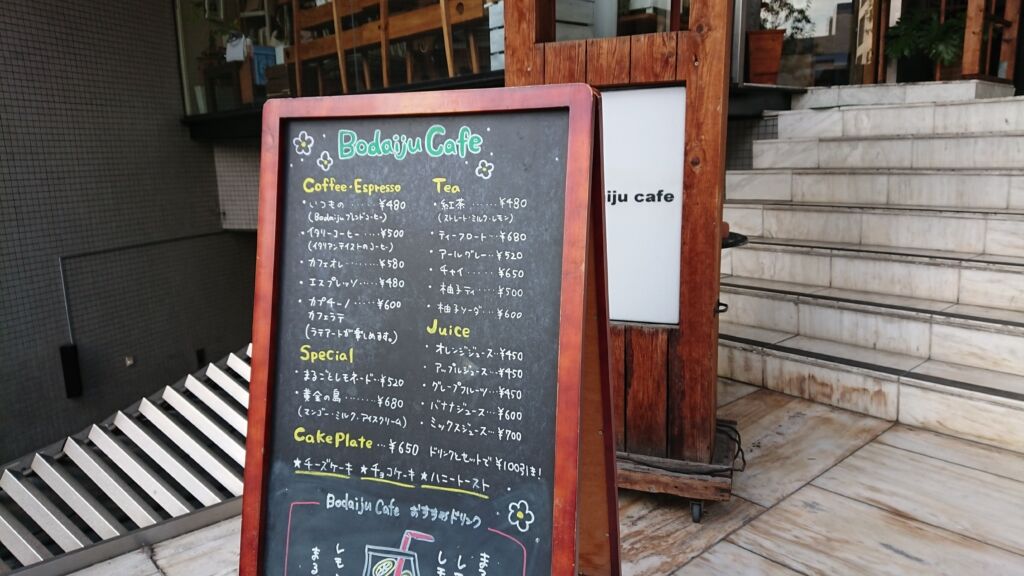 Bodaiju Cafe
Coffee・Espresso
・いつもの ...... ¥480
(Bodaijuブレンドコーヒー)
・イタリーコーヒー ... ¥500
(イタリアンテイストのコーヒー)
・カフェオレ ...... ¥580
・エスプレッソ ...... ¥480
・カプチーノ ...... ¥600
カフェラテ
(ラテアートが楽しめます。)
Special
・まるごとレモネード... ¥520
・黄金の島 ...... ¥680
(マンゴー・ミルク・アイスクリーム)
Tea
・紅茶 ...... ¥480
(ストレート・ミルク・レモン)
・ティーフロート... ¥680
・アールグレー... ¥520
・チャイ ...... ¥650
・柚子ティ ...... ¥500
・柚子ソーダ ... ¥600
Juice
・オレンジジュース... ¥450
・アップルジュース... ¥450
・グレープフルーツ... ¥450
・バナナジュース... ¥600
・ミックスジュース... ¥700
Cake Plate ... ¥650 ドリンクセットで¥100引き!
★チーズケーキ ★チョコケーキ ★ハニートースト
Bodaiju Cafe おすすめドリンク
iju cafe